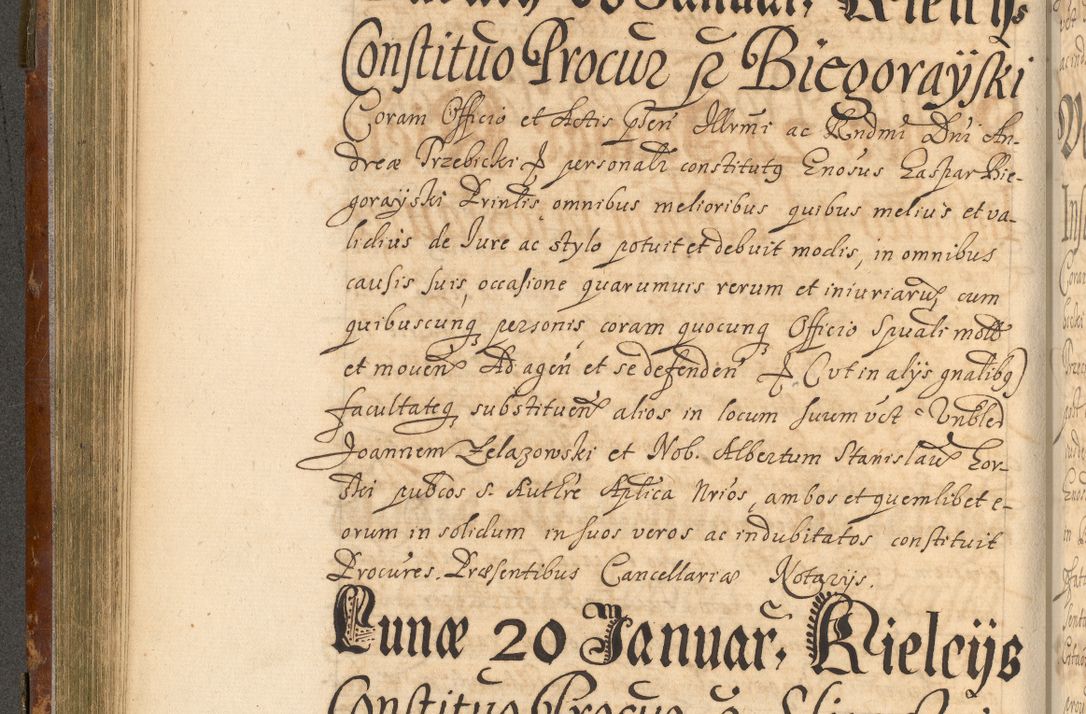 18 Januar. Kielcijs
Constituo Procur p Biegorayski
Coram Officio et Actis psen Illrmi ac Rndmi Dni An-
dreæ Trzebicki & personali constitutq Gnosus Caspar Bie-
gorayski Printis omnibus melioribus quibus melius et va-
lidius de Iure ac stylo potuit et debuit modis, in omnibus
causis suis, occasione quarumuis rerum et iniuriaru, cum
quibuscunq personis coram quocunq Officio Spuali mott
et mouen Ad agen et se defenden & C vt in alijs gnalibq)
facultateq substituen alios in locum suum vct Vnbled
Joannem Zelazowski et Nob. Albertum Stanislau Gor-
ski pubcos s. Authre Aplica Nrios, ambos et quemlibet e-
orum in solidum in suos veros ac indubitatos constituit
Procures. Præsentibus Cancellariæ Notarijs.
Lunæ 20 Januar. Kielcijs
Constituo Procur p